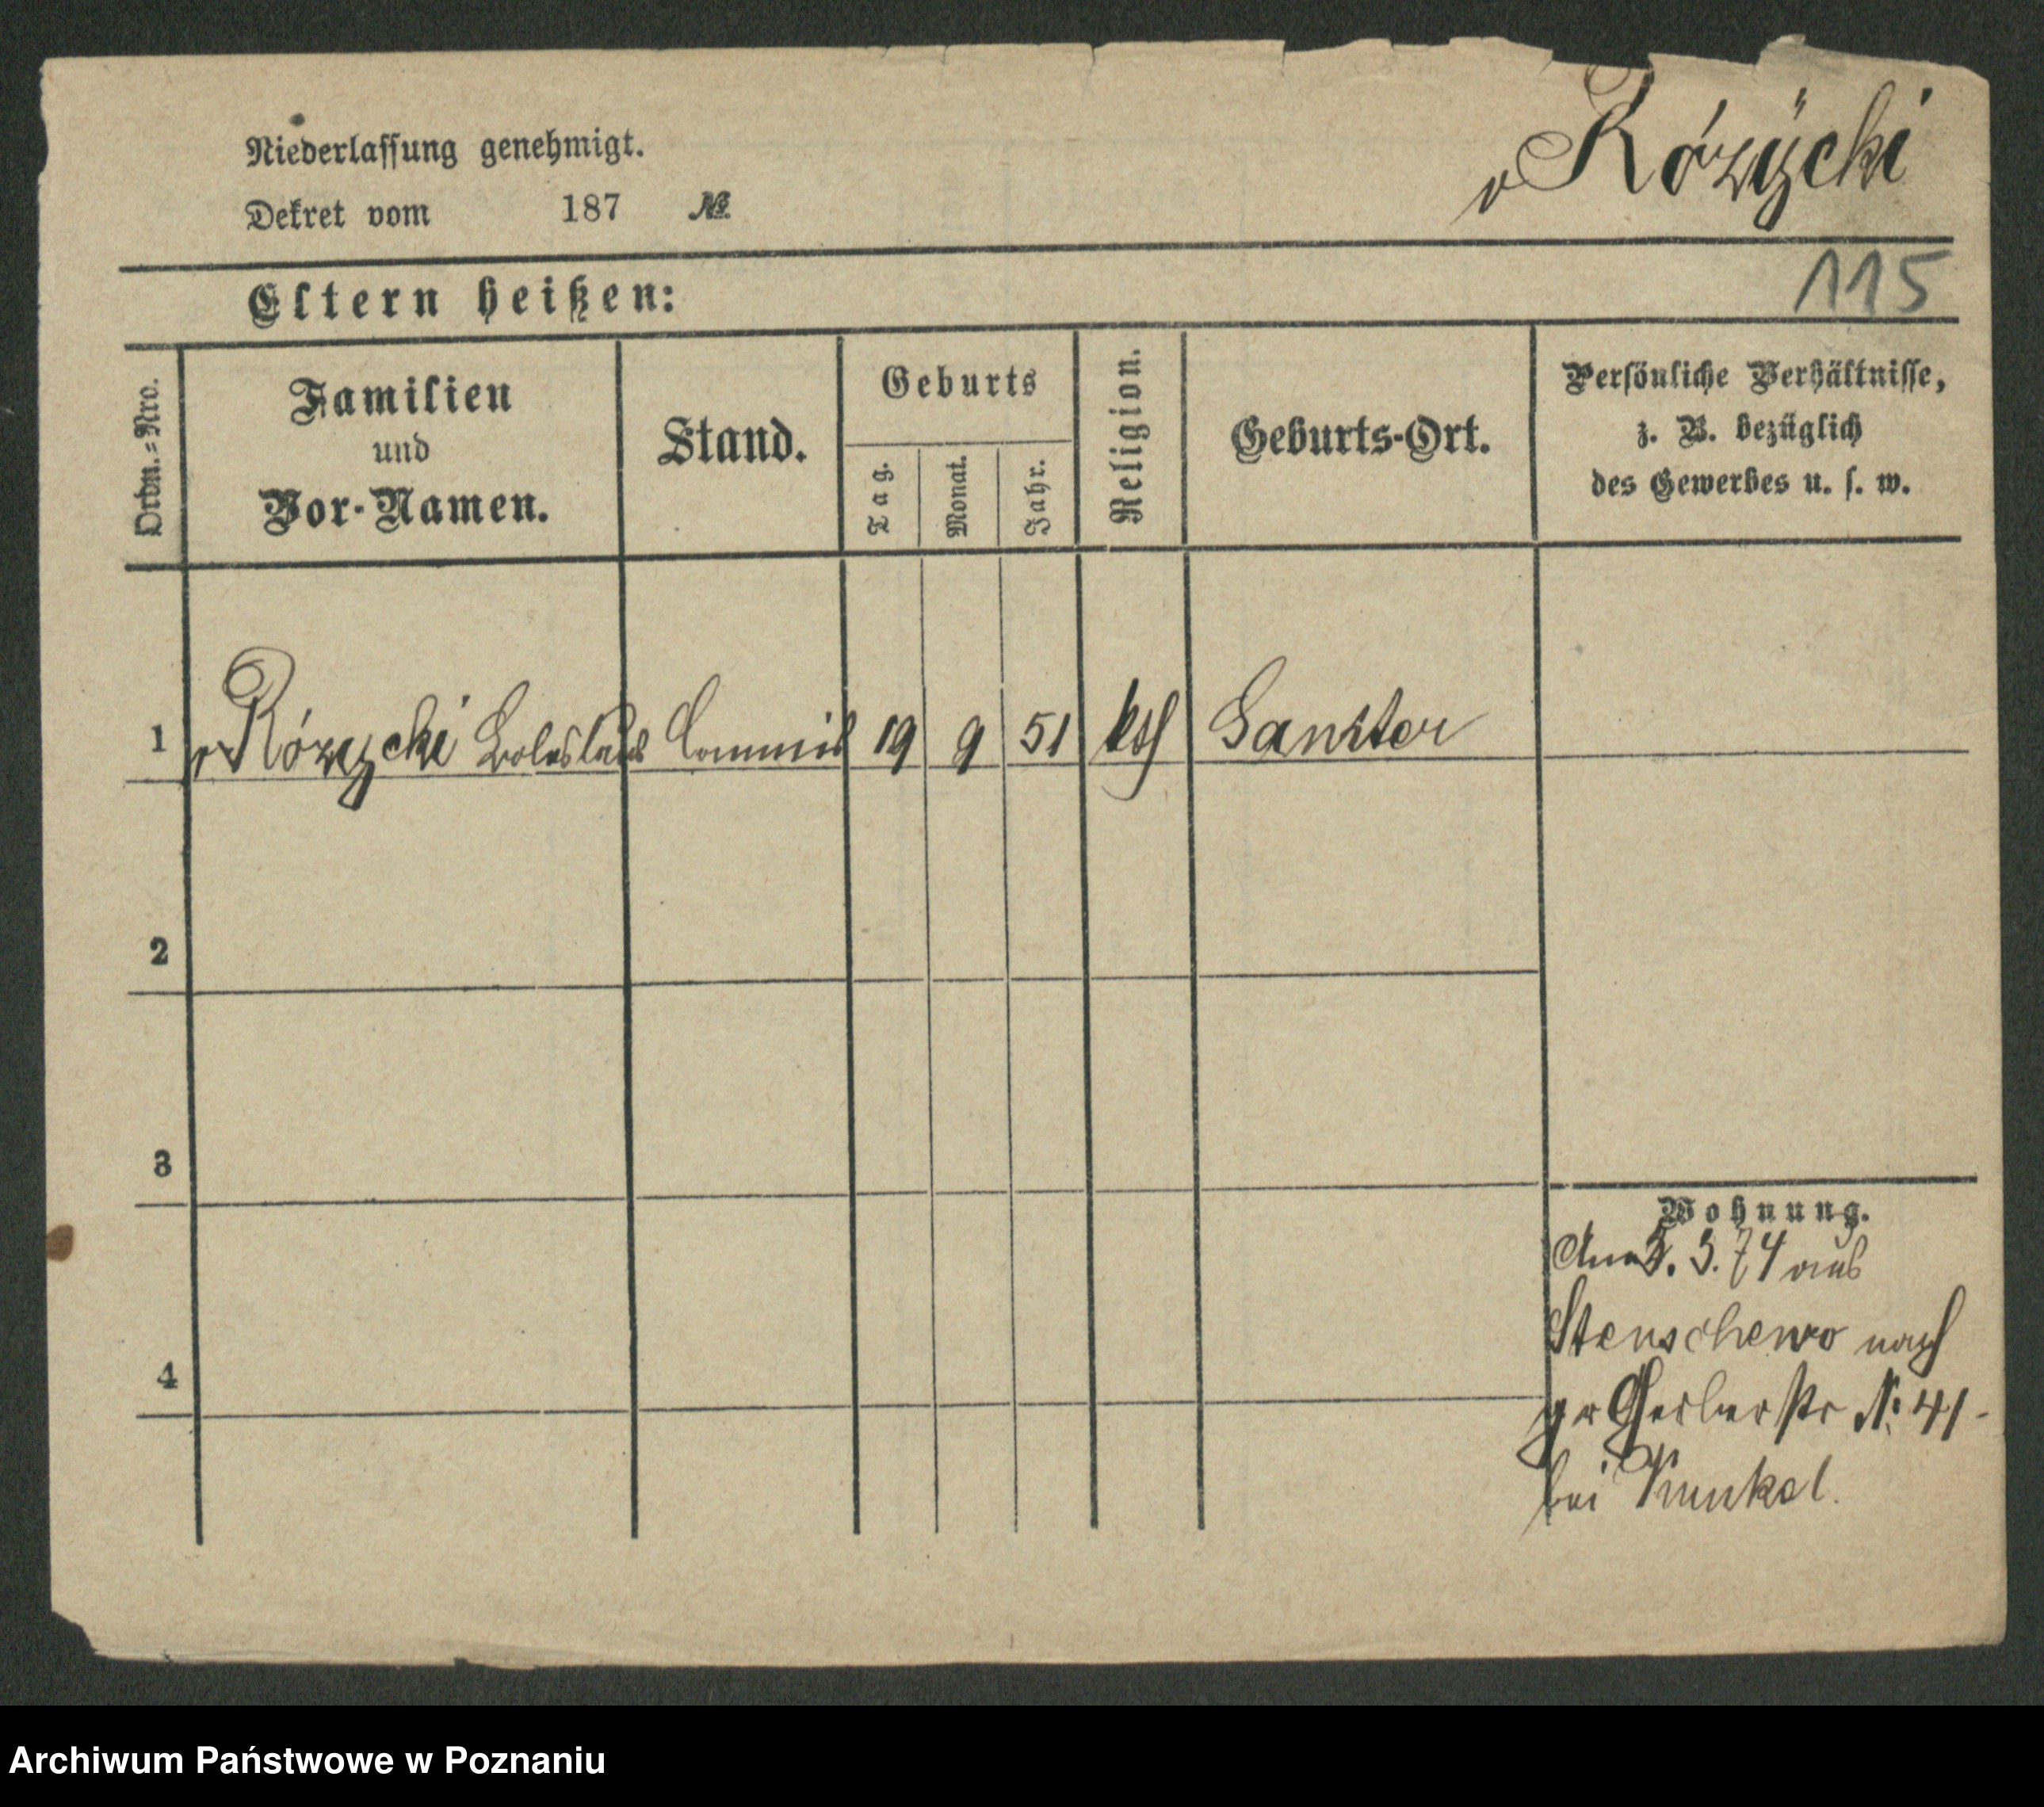 Niederlassung genehmigt.
Dekret vom 187 №
v Różycki
115
Eltern heißen:
Ordn.-Nro.
Familien
und
Vor-Namen.
Stand.
Geburts
Tag.
Monat.
Jahr.
Religion.
Geburts-Ort.
Persönliche Verhältnisse,
z. B. bezüglich
des Gewerbes u. s. w.
1 v Różycki Boleslaus Commis 19 9 51 kth
2
3
4
Wohnung.
3. 74 aus
Stenschewo nach
gr Gerberstr №. 41.
bei Kunkel.
Archiwum Państwowe w Poznaniu